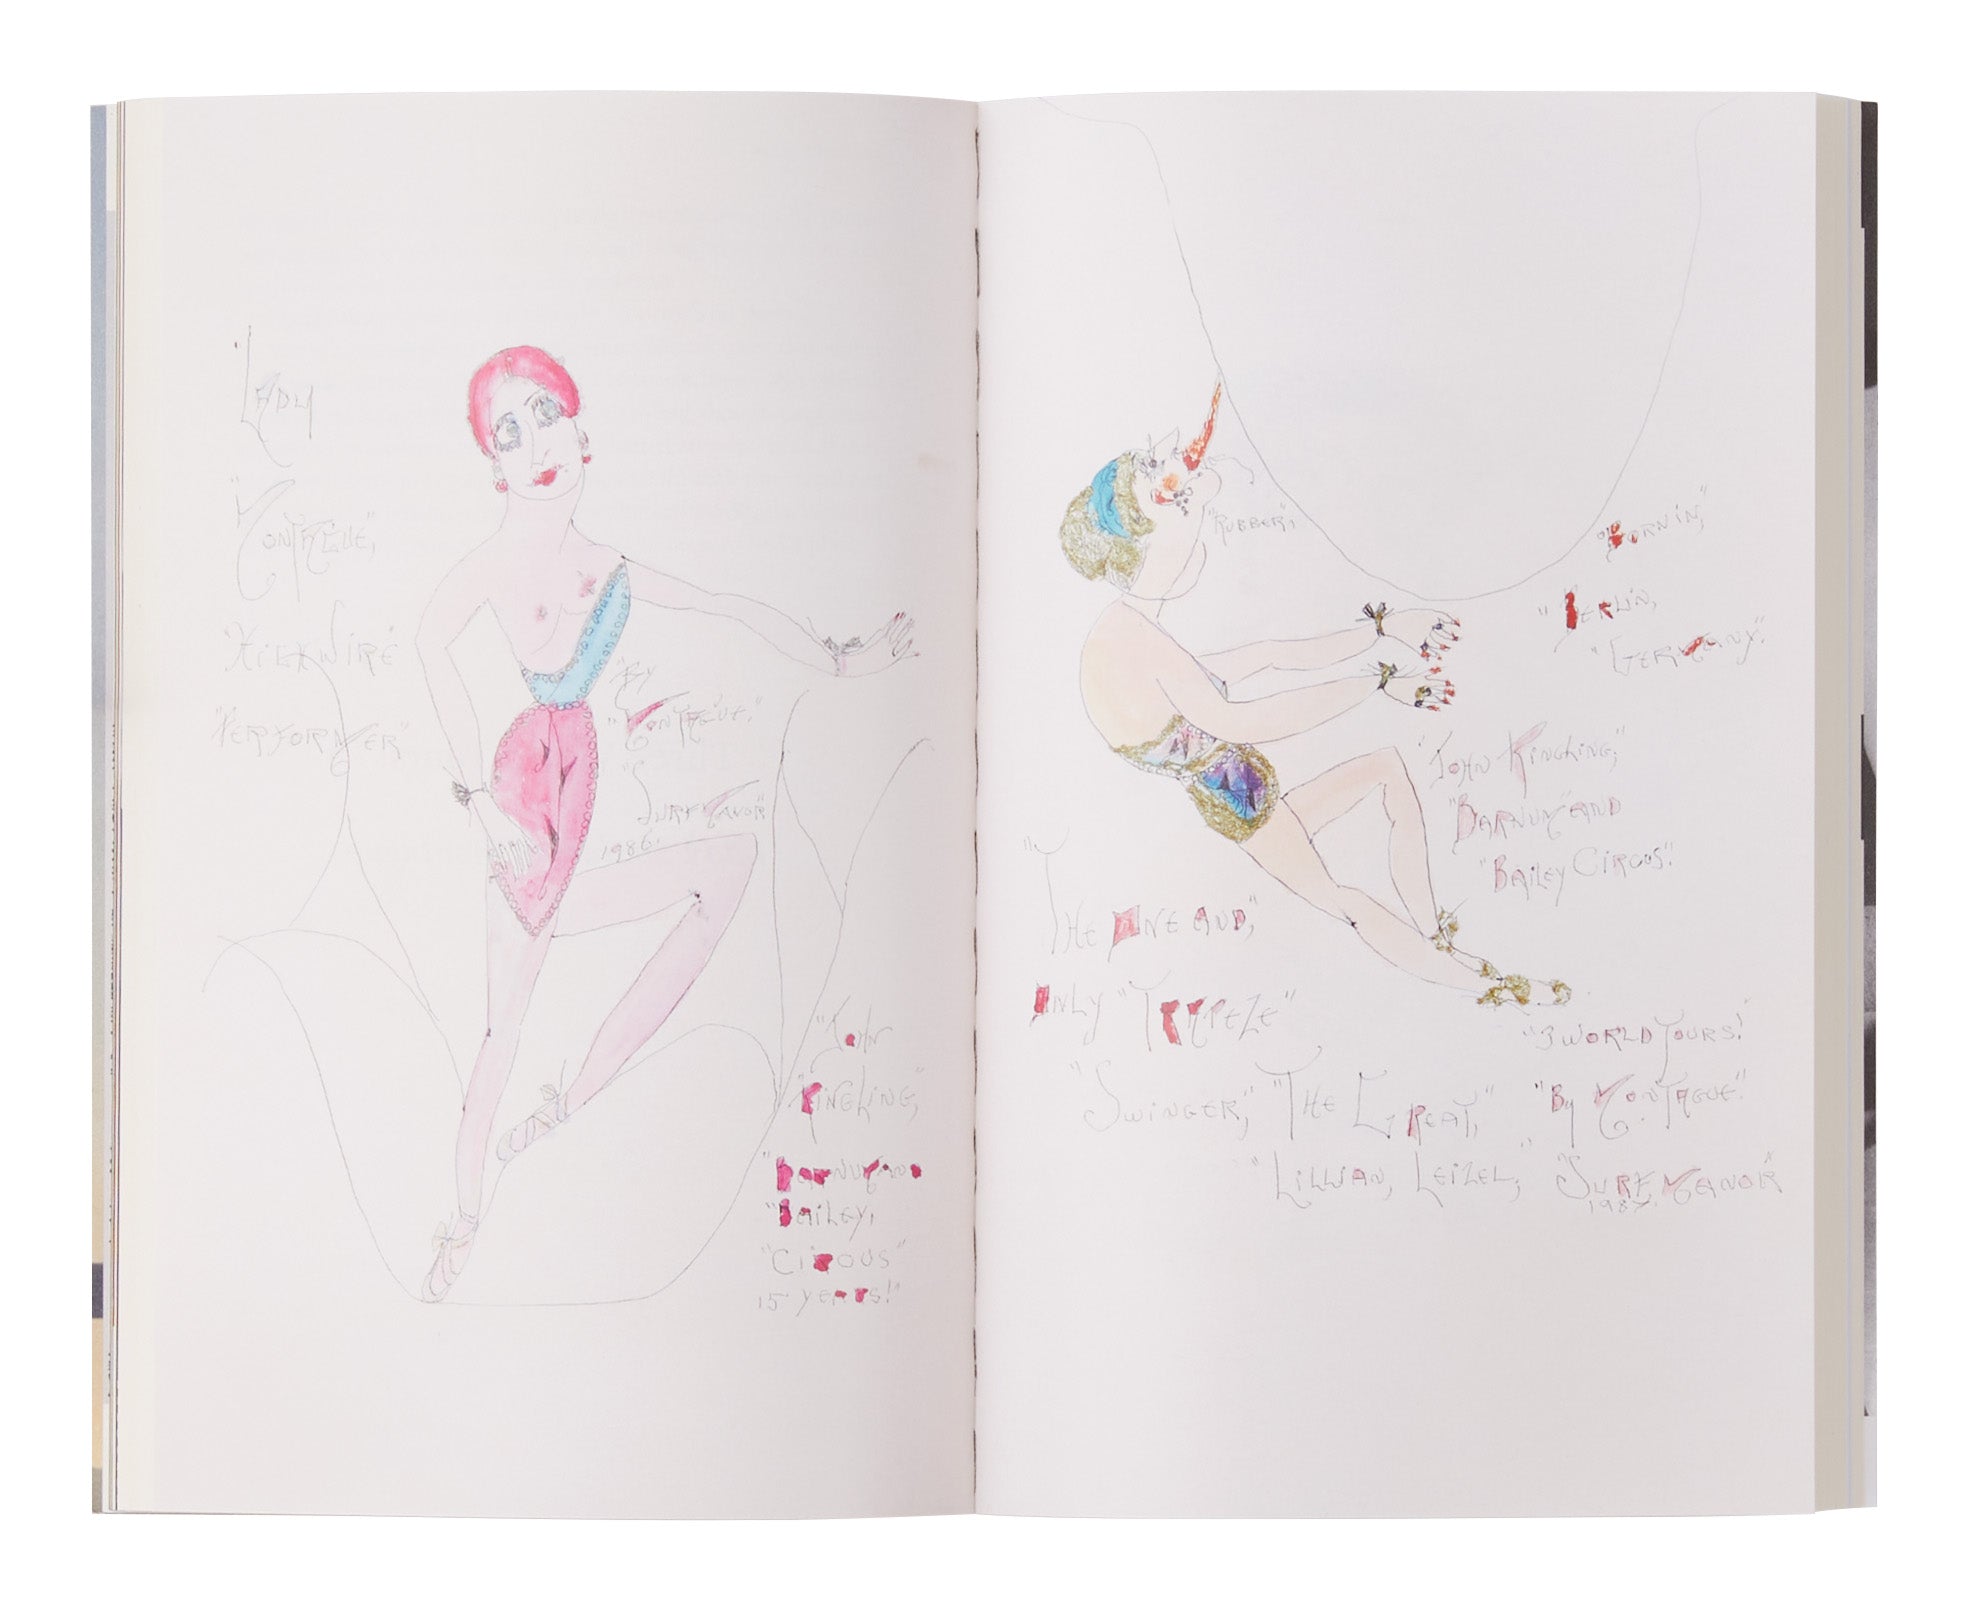 "Lady
"Montague",
"Highwire"
"Performer"
"By
"Montague."
"Surf Manor"
1986.
"John
"Ringling,"
"Barnum and
"Bailey,
"Circus"
15 years!"
"Rubber",
"Born in,"
"Berlin,
"Germany."
"John Ringling,"
"Barnum" and
"Bailey Circus!"
"The One and,"
Only "Trapeze"
"Swinger," "The Great,"
"Lillian, Leizel,"
"3 World Tours!
"By Montague."
"Surf Manor"
1987.